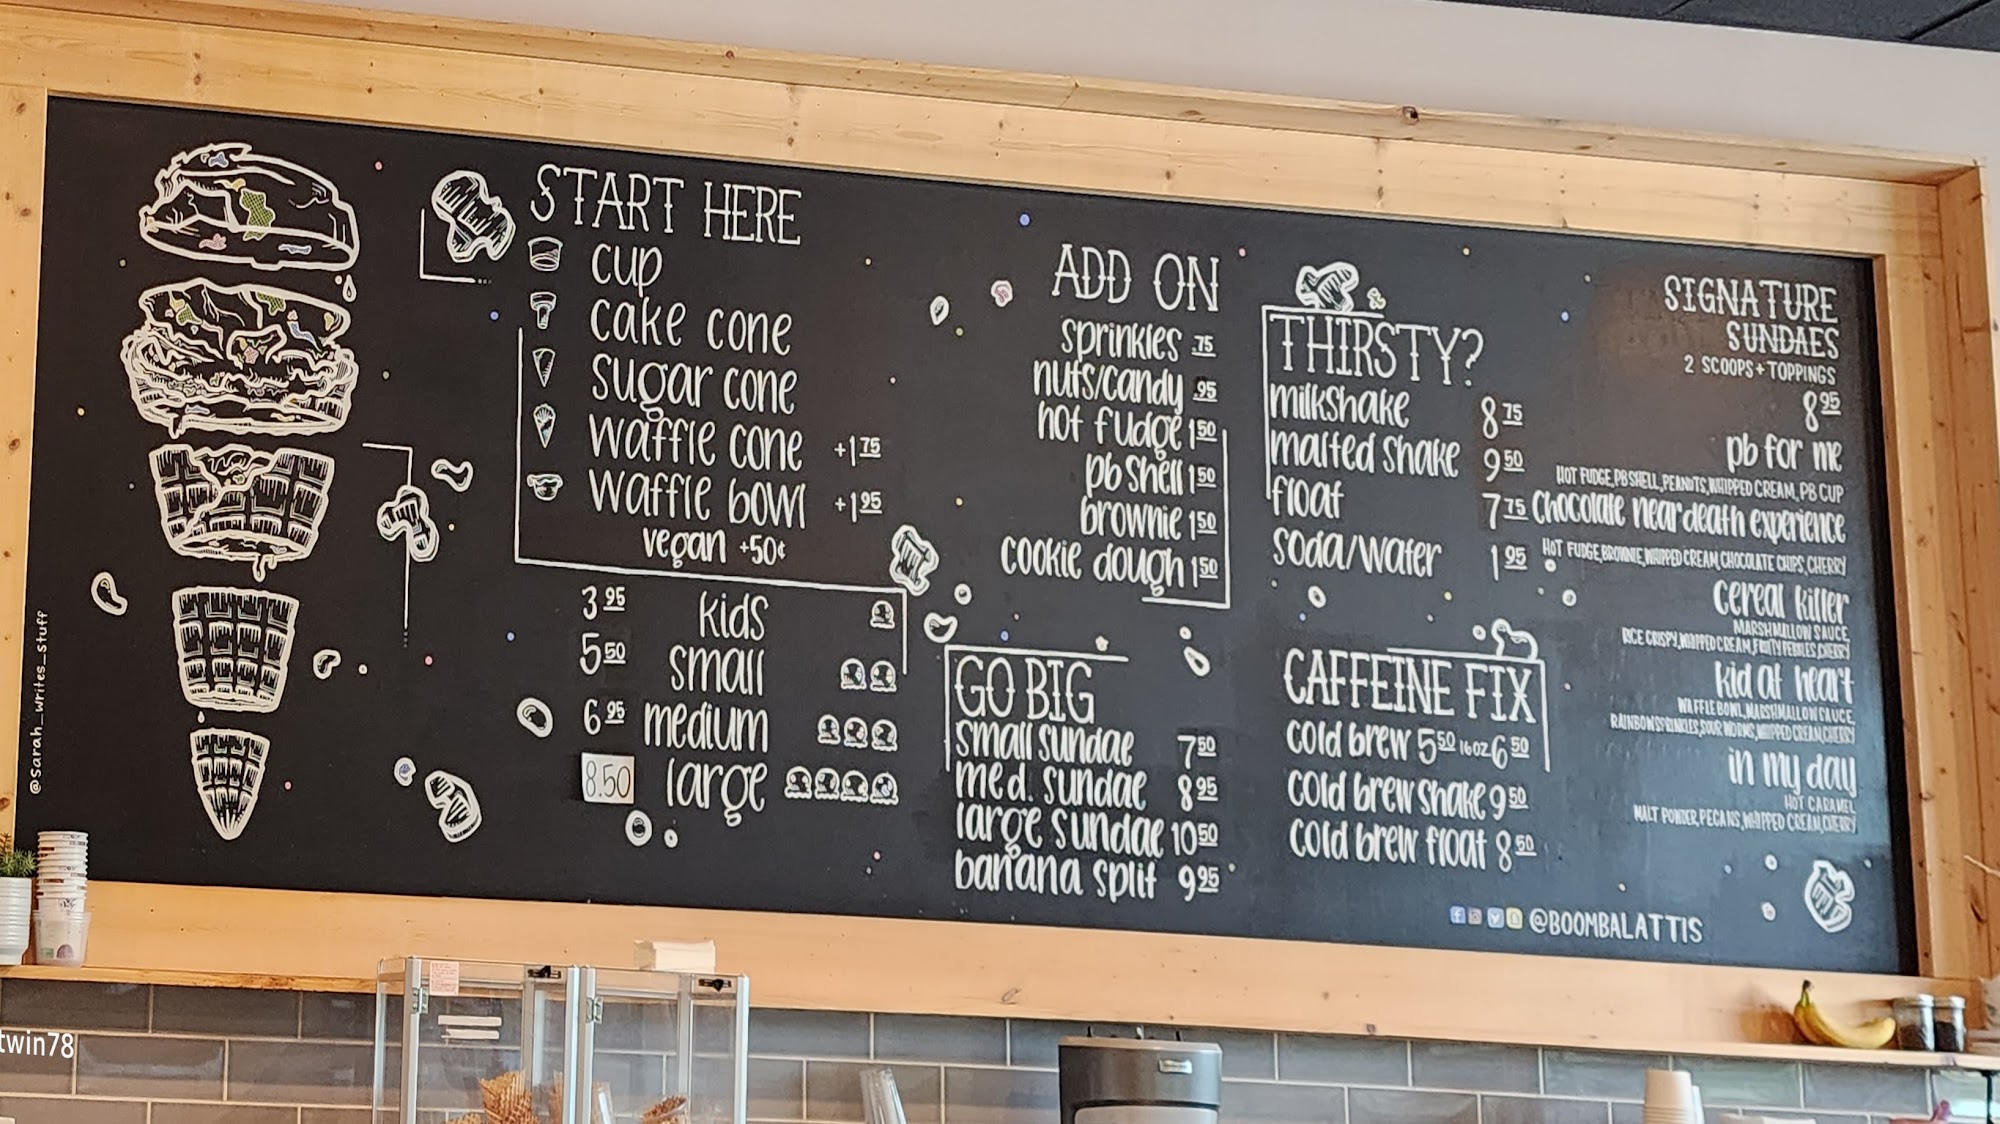 START HERE
cup
cake cone
sugar cone
waffle cone +1 75
waffle bowl +1 95
vegan +50¢
3 95 kids
5 50 small
6 95 medium
8.50 large
ADD ON
sprinkles .75
nuts/candy .95
hot fudge 1 50
pb shell 1 50
brownie 1 50
cookie dough 1 50
GO BIG
small sundae 7 50
med. sundae 8 95
large sundae 10 50
banana split 9 95
THIRSTY?
milkshake 8 75
malted shake 9 50
float 7 75
soda/water 1 95
CAFFEINE FIX
cold brew 5 50 16oz 6 50
cold brew shake 9 50
cold brew float 8 50
SIGNATURE
SUNDAES
2 SCOOPS + TOPPINGS
8 95
pb for me
HOT FUDGE, PB SHELL, PEANUTS, WHIPPED CREAM, PB CUP
chocolate near death experience
HOT FUDGE, BROWNIE, WHIPPED CREAM, CHOCOLATE CHIPS, CHERRY
cereal killer
MARSHMALLOW SAUCE,
RICE CRISPY, WHIPPED CREAM, FRUITY PEBBLES, CHERRY
kid at heart
WAFFLE BOWL, MARSHMALLOW SAUCE,
RAINBOW SPRINKLES, SOUR WORMS, WHIPPED CREAM, CHERRY
in my day
HOT CARAMEL
MALT POWDER, PECANS, WHIPPED CREAM, CHERRY
@BOOMBALATTIS
@sarah_writes_stuff
twin78